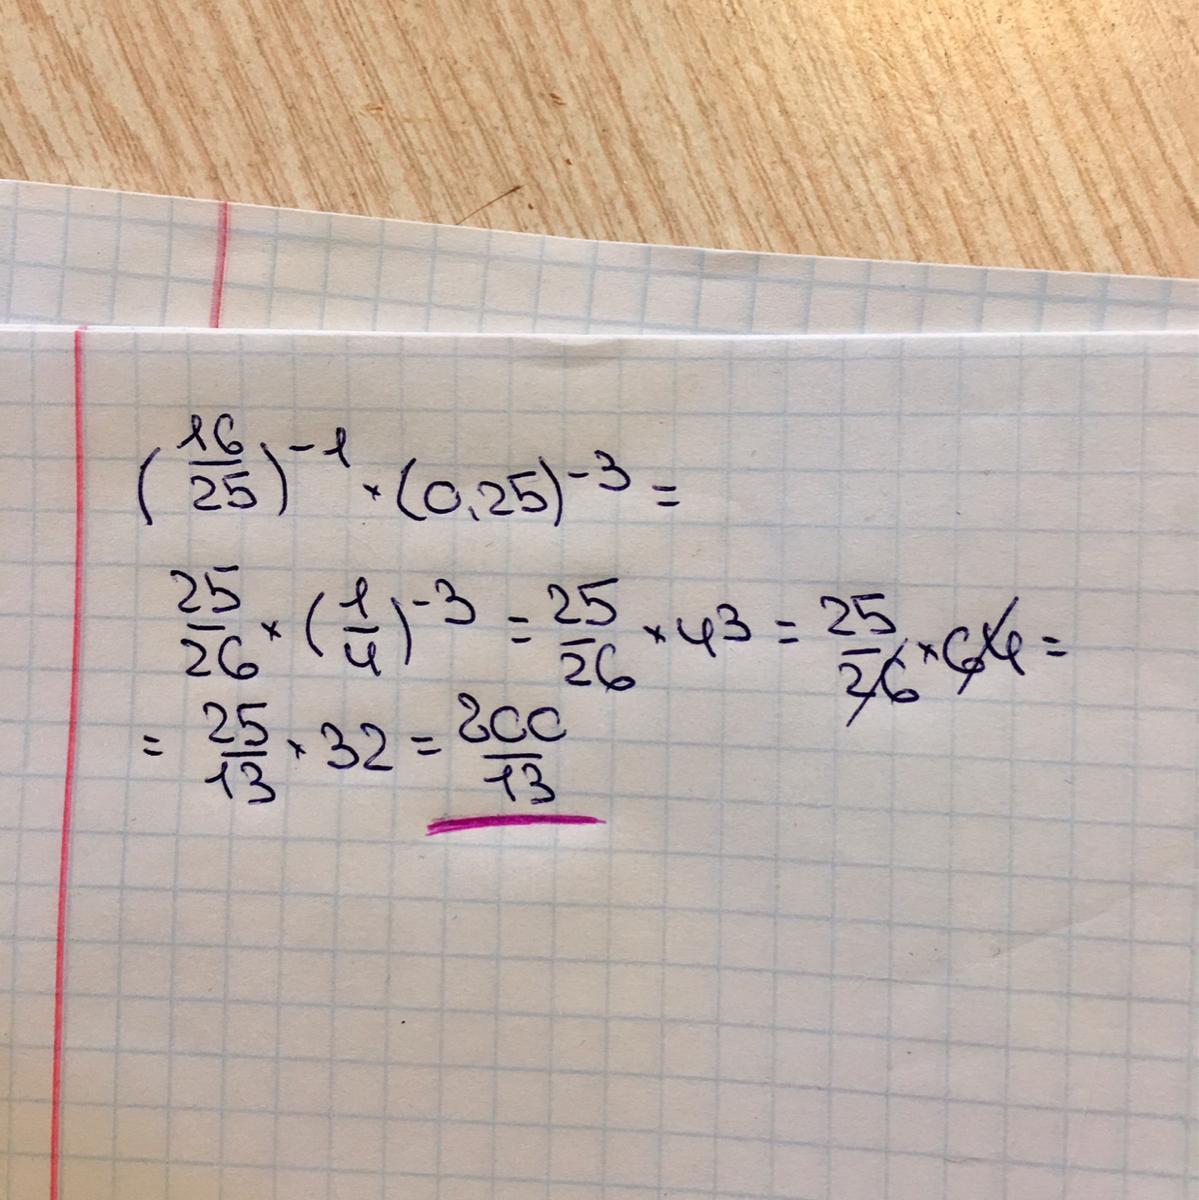 (16/25)^-1 × (0,25)^-3 =
25/26 × (1/4)^-3 = 25/26 × 43 = 25/26 × 64 =
= 25/13 × 32 = 800/13